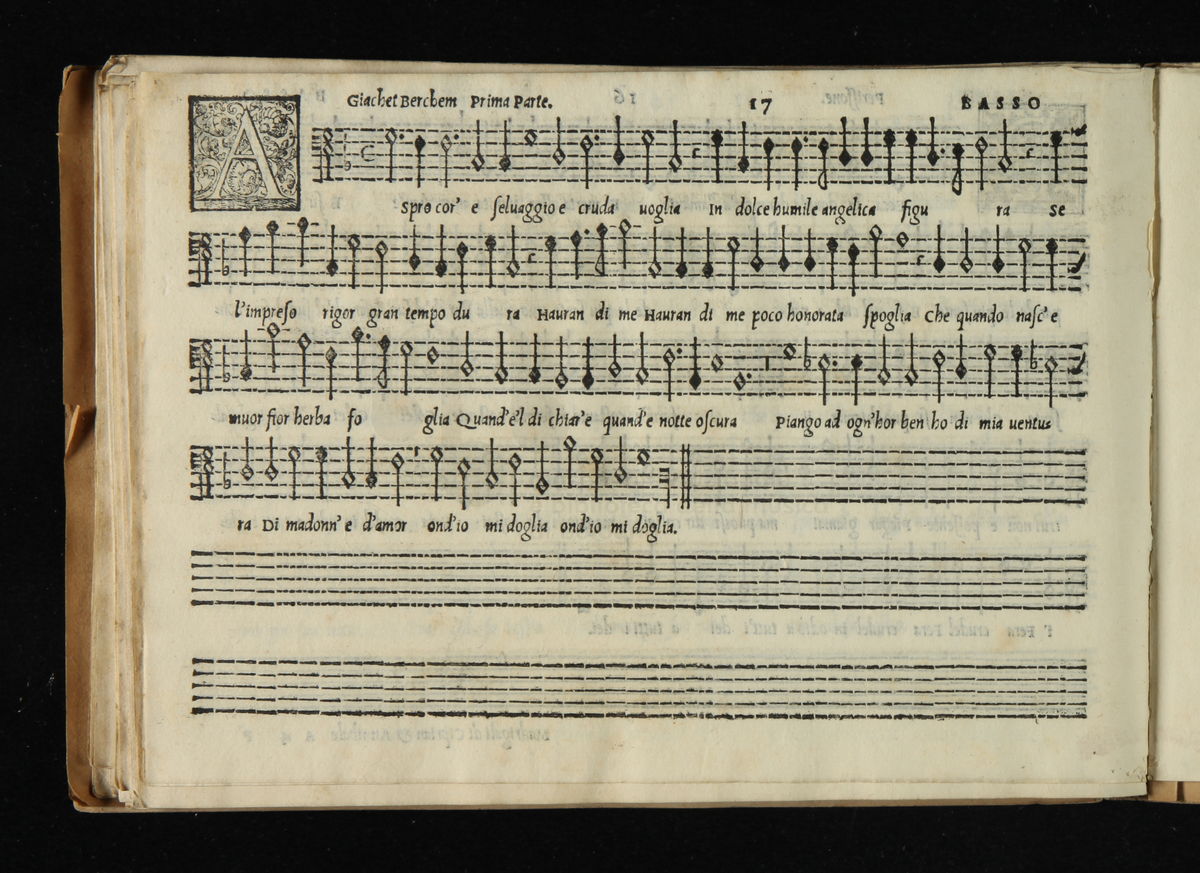 Giachet Berchem Prima Parte. 17 BASSO
A
spro cor' e seluaggio e cruda uoglia In dolce humile angelica figu ra se
l'impreso rigor gran tempo du ra Hauran di me Hauran di me poco honorata spoglia Che quando nasc' e
muor fior herba fo glia Quand'e'l di chiar'e quand'e notte oscura Piango ad ogn'hor ben ho di mia uentus
ra Di madonn' e d'amor ond'io mi doglia ond'io mi doglia.